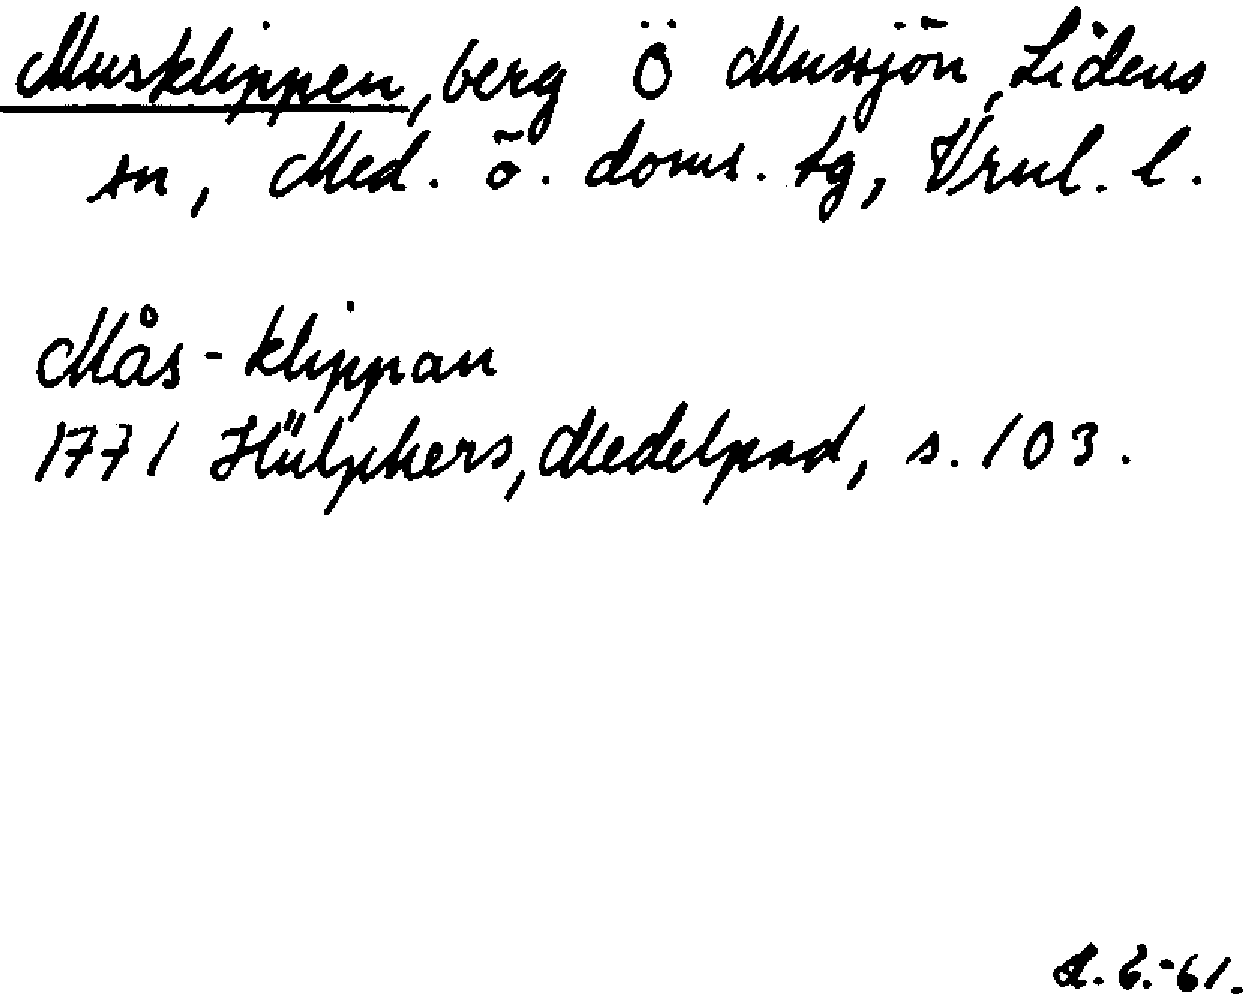 Musklippen, berg Ö Mussjön, Lidens
sn, Med. ö. doms. tg, Vrnl. l.
Mås-klippan
1771 Hülphers, Medelpad, s. 103.
-61.